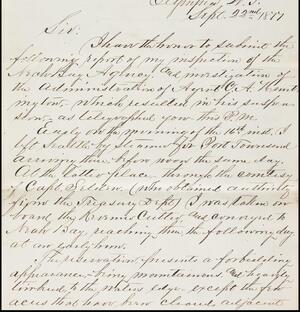 Olympia, W.T.
Sept. 22nd 1877
Sir:
I have the honor to submit the
following report of my inspection of the
Neah Bay Agency, and investigation of
the Administration of Agent C. A. Hunt-
ington, which resulted in his suspen-
sion, as telegraphed you this P.M.
Early on the morning of the 16th inst. I
left Seattle by steamer for Port Townsend
arriving there before noon the same day.
At the latter place through the courtesy
of Capt. Selden (who obtained authority
from the Treasury Dept) I was taken on
board the Revenue Cutter, and conveyed to
Neah Bay, reaching there the following day
at an early hour.
The reservation presents a forbidding
appearance - being mountainous and heavily
timbered to the waters edge - except the few
acres that have been cleared adjacent